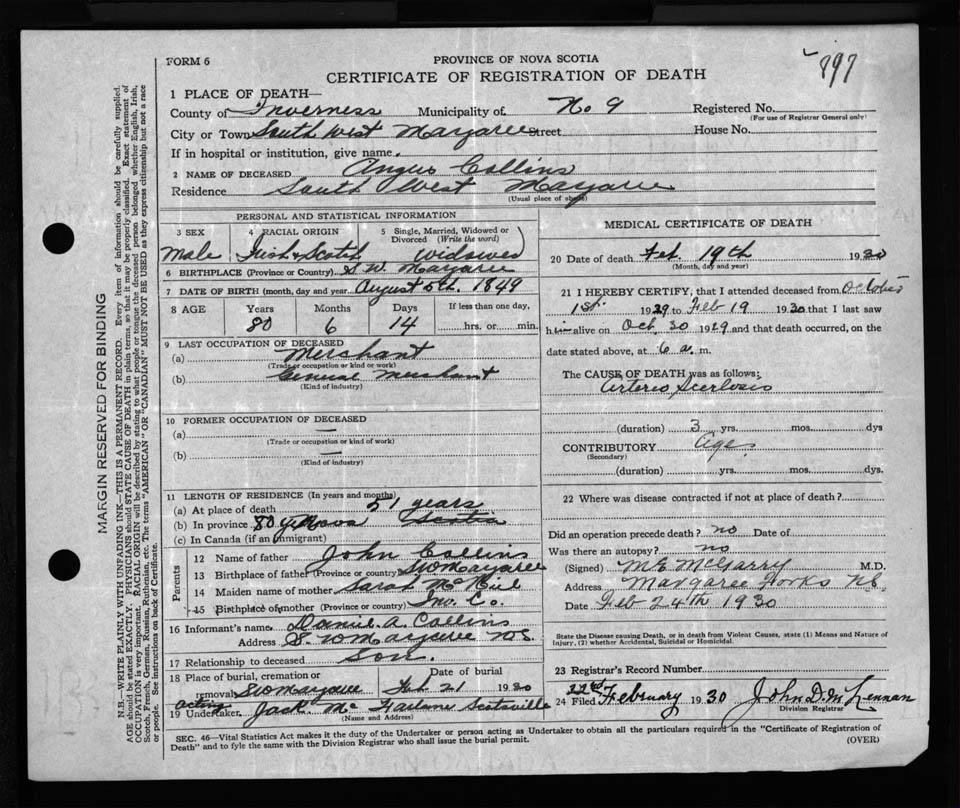 FORM 6
PROVINCE OF NOVA SCOTIA
CERTIFICATE OF REGISTRATION OF DEATH
897
1 PLACE OF DEATH—
County of Inverness Municipality of No 9 Registered No.
(For use of Registrar General only)
City or Town South West Margaree Street House No.
If in hospital or institution, give name.
2 NAME OF DECEASED Angus Collins
Residence South West Margaree
(Usual place of abode)
PERSONAL AND STATISTICAL INFORMATION
3 SEX 4 RACIAL ORIGIN 5 Single, Married, Widowed or Divorced (Write the word)
Male Irish & Scotch Widower
6 BIRTHPLACE (Province or Country) S. W. Margaree
7 DATE OF BIRTH (month, day and year) August 5th 1849
8 AGE Years Months Days If less than one day,
80 6 14 hrs. or min.
9 LAST OCCUPATION OF DECEASED
(a) Merchant
(Trade or occupation or kind of work)
(b) General Merchant
(Kind of industry)
10 FORMER OCCUPATION OF DECEASED
(a) —
(Trade or occupation or kind of work)
(b) —
(Kind of industry)
11 LENGTH OF RESIDENCE (In years and months)
(a) At place of death 51 years
(b) In province 80 Nova Scotia
(c) In Canada (if an immigrant)
Parents
12 Name of father John Collins
13 Birthplace of father (Province or country) SW Margaree
14 Maiden name of mother Sarah
15 Birthplace of mother (Province or country) Inv. Co.
16 Informant's name Daniel A. Collins
Address S. W Margaree N.S.
17 Relationship to deceased Son.
18 Place of burial, cremation or removal Date of burial
SW Margaree Feb 21 1930
acting
19 Undertaker Jack Mc Farlane Scotsville
(Name and Address)
MEDICAL CERTIFICATE OF DEATH
20 Date of death Feb. 19th 1930
(Month, day and year)
21 I HEREBY CERTIFY, that I attended deceased from October
1st. 1929 to Feb 19 1930 that I last saw
him alive on Oct. 30 1929 and that death occurred, on the
date stated above, at 6 a. m.
The CAUSE OF DEATH was as follows:
Arterio Scerlosis
(duration) 3 yrs. mos. dys
CONTRIBUTORY Age
(Secondary)
(duration) yrs. mos. dys.
22 Where was disease contracted if not at place of death?
Did an operation precede death? no Date of
Was there an autopsy? no
(Signed) M E McGarry M.D.
Address Margaree Forks N.S
Date Feb 24th 1930
State the Disease causing Death, or in death from Violent Causes, state (1) Means and Nature of
Injury, (2) whether Accidental, Suicidal or Homicidal.
23 Registrar's Record Number
24 Filed 22nd February 1930 John D. McLennan
Division Registrar
SEC. 46—Vital Statistics Act makes it the duty of the Undertaker or person acting as Undertaker to obtain all the particulars required in the "Certificate of Registration of
Death" and to fyle the same with the Division Registrar who shall issue the burial permit.
(OVER)
MARGIN RESERVED FOR BINDING
N.B.—WRITE PLAINLY WITH UNFADING INK—THIS IS A PERMANENT RECORD. Every item of information should be carefully supplied.
AGE should be stated EXACTLY. PHYSICIANS should STATE CAUSE OF DEATH in plain terms, so that it may be properly classified. Exact statement of
OCCUPATION is very important. RACIAL ORIGIN will be described by stating to what people or tongue the deceased person belonged whether English, Irish,
Scotch, French, German, Russian, Ruthenian, etc. The terms "AMERICAN" OR "CANADIAN" MUST NOT BE USED as they express citizenship but not a race
or people. See instructions on back of Certificate.